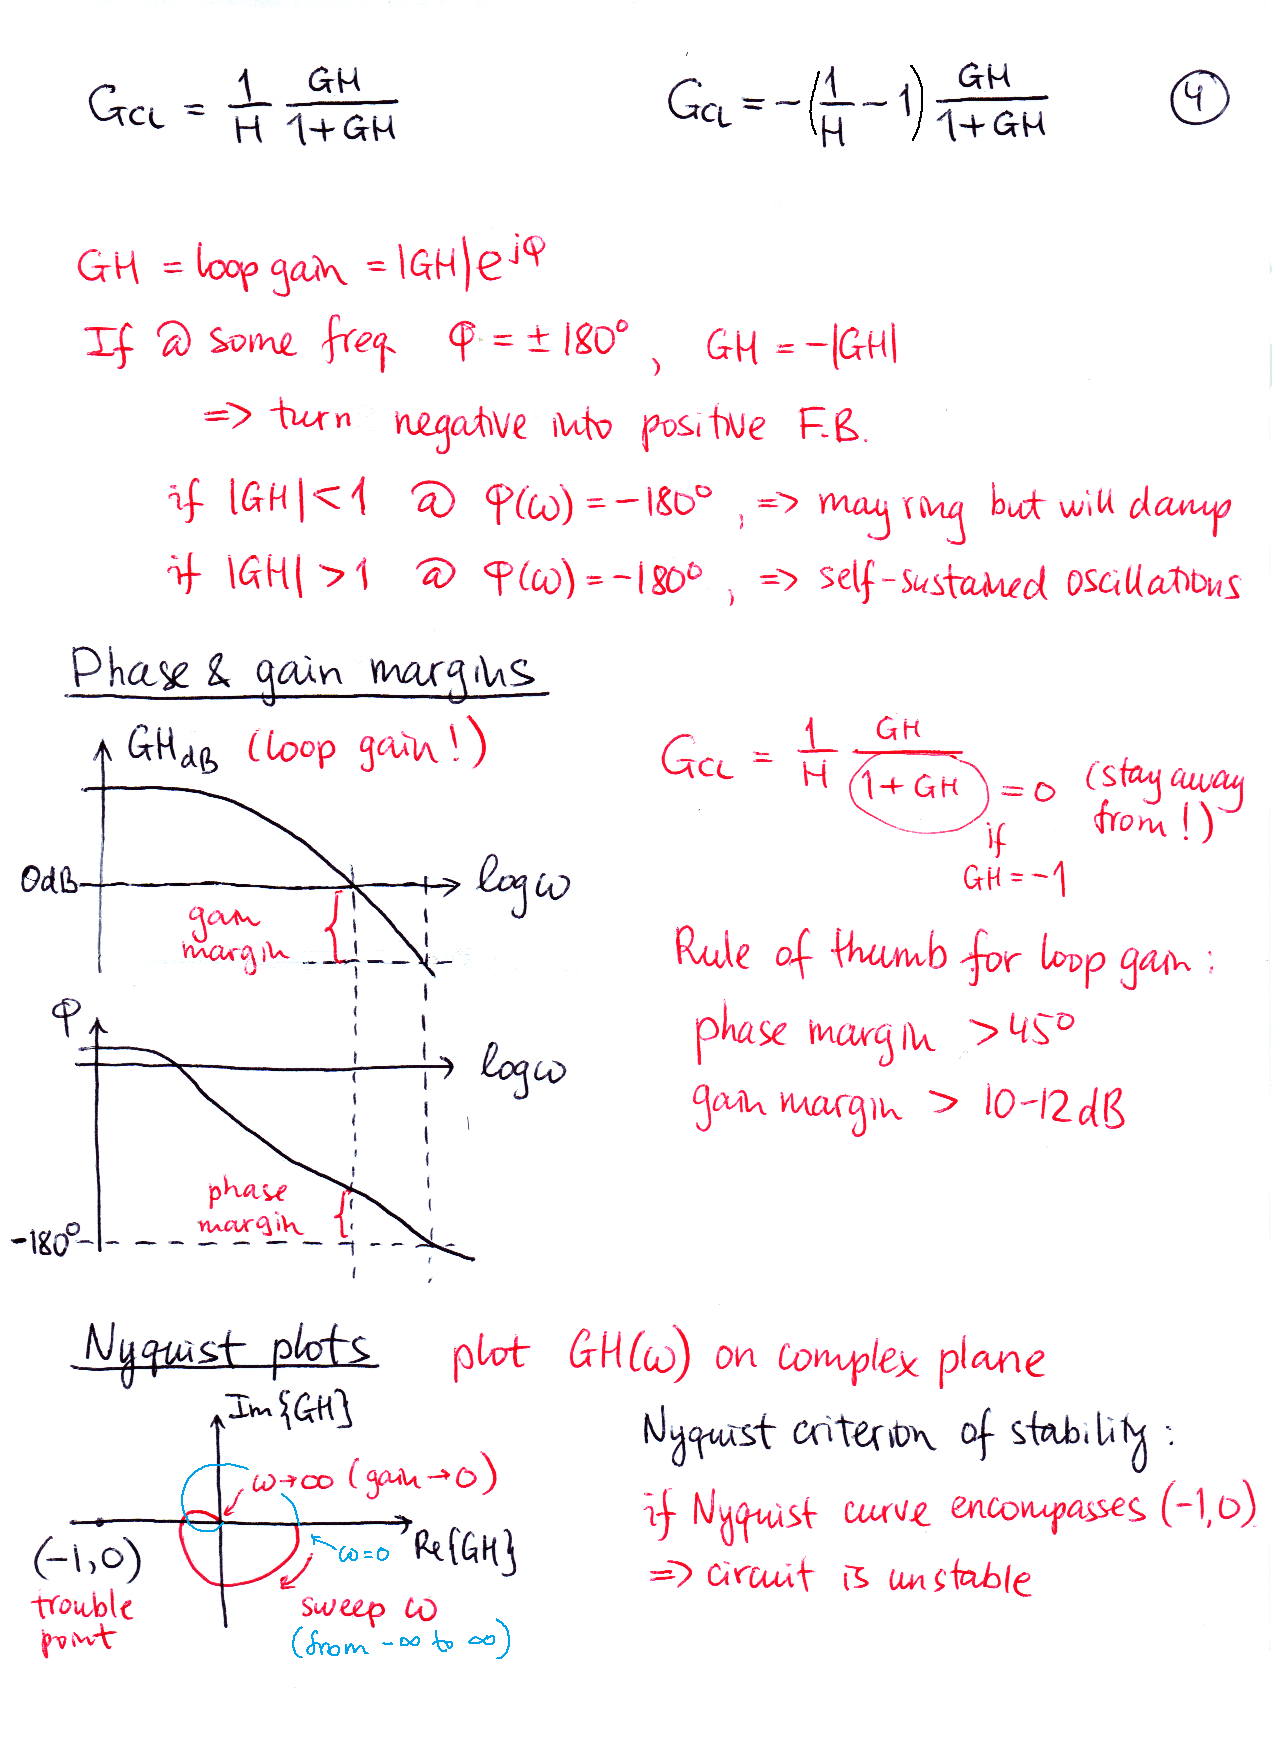 G_CL = 1/H GH/(1+GH)
G_CL = -(1/H - 1) GH/(1+GH)
4
GH = loop gain = |GH|e^jφ
If @ some freq φ = ±180°, GH = -|GH|
=> turn negative into positive F.B.
if |GH|<1 @ φ(ω) = -180°, => may ring but will damp
if |GH| >1 @ φ(ω) = -180°, => self-sustained oscillations
Phase & gain margins
GH_dB (loop gain!)
0dB
log ω
gain
margin
φ
log ω
phase
margin
-180°
G_CL = 1/H GH/(1+GH) = 0 (stay away
from!)
if
GH = -1
Rule of thumb for loop gain:
phase margin > 45°
gain margin > 10-12dB
Nyquist plots plot GH(ω) on complex plane
Im{GH}
ω→∞ (gain→0)
Re{GH}
ω=0
(-1,0)
trouble
point
sweep ω
(from -∞ to ∞)
Nyquist criterion of stability:
if Nyquist curve encompasses (-1,0)
=> circuit is unstable